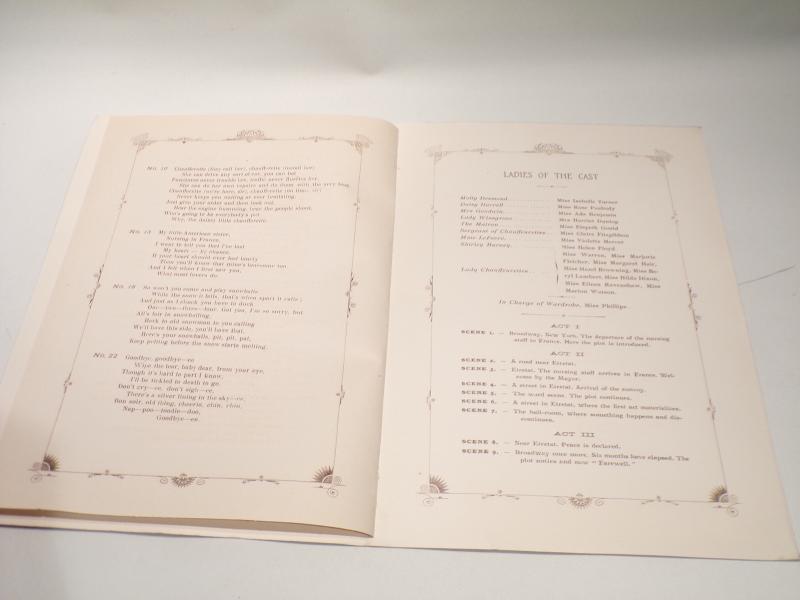 No. 10 Chaufferette (they call her), chaufferette (install her)
She can drive any sort of car, you can bet
Punctures never trouble her, traffic never flurries her,
She can do her own repairs and do them with the very best,
Chaufferette (we're here, sir), chaufferette (on time, sir)
Never keeps you waiting or ever
Just give your order and then look out.
Hear the engine humming, hear the people shout,
Who's going to be everybody's pet
Why, the dainty little chaufferette.
No. 13 My little American sister,
Nursing in France,
I want to tell you that I've lost
My heart — by chance.
If your heart should ever feel lonely
Then you'll know that mine's lonesome too
And I felt when I first saw you,
What most lovers do.
No. 18 So won't you come and play snowballs
While the snow it falls, that's when sport it calls;
And just as I chuck you have to duck
One—two—three—four. Got you, I'm so sorry, but
All's fair in snowballing.
Hark to old snowman to you calling
We'll have this side, you'll have that.
Here's your snowballs, pit, pit, pat,
Keep pelting before the snow starts melting.
No. 22 Goodbye, goodbye—ee
Wipe the tear, baby dear, from your eye,
Though it's hard to part I know,
I'll be tickled to death to go.
Don't cry—ee, don't sigh—ee,
There's a silver lining in the sky—ee,
Bon soir, old thing, cheerio, chin, chin,
Nap—poo—toodle—doo,
Goodbye—ee.
LADIES OF THE CAST
Molly Desmond Miss Isabelle Turner
Daisy Darrell Miss Rose Peabody
Mrs Goodwin Miss Ada Benjamin
Lady Winsgrass Mrs Harries Dunlop
The Matron Miss Elspeth Gould
Sergeant of Chauffeurettes Miss Claire Fitzgibbon
Mme LeFaivre Miss Violette Mercer
Shirley Harvey Miss Helen Floyd
Lady Chauffeurettes
Miss Warren, Miss Marjorie
Fletcher, Miss Margaret Hair,
Miss Hazel Browning, Miss Be-
ryl Lambert, Miss Hilda Dixon,
Miss Eileen Ravenshaw, Miss
Marion Watson.
In Charge of Wardrobe, Miss Phillips.
ACT I
SCENE 1. — Broadway, New York. The departure of the nursing
staff to France. Here the plot is introduced.
ACT II
SCENE 2. — A road near Etretat.
SCENE 3. — Etretat. The nursing staff arrives in France. Wel-
come by the Mayor.
SCENE 4. — A street in Etretat. Arrival of the convoy.
SCENE 5. — The ward scene. The plot continues.
SCENE 6. — A street in Etretat, where the first act materializes.
SCENE 7. — The ball-room, where something happens and dis-
continues.
ACT III
SCENE 8. — Near Etretat. Peace is declared.
SCENE 9. — Broadway once more. Six months have elapsed. The
plot and now "Farewell."